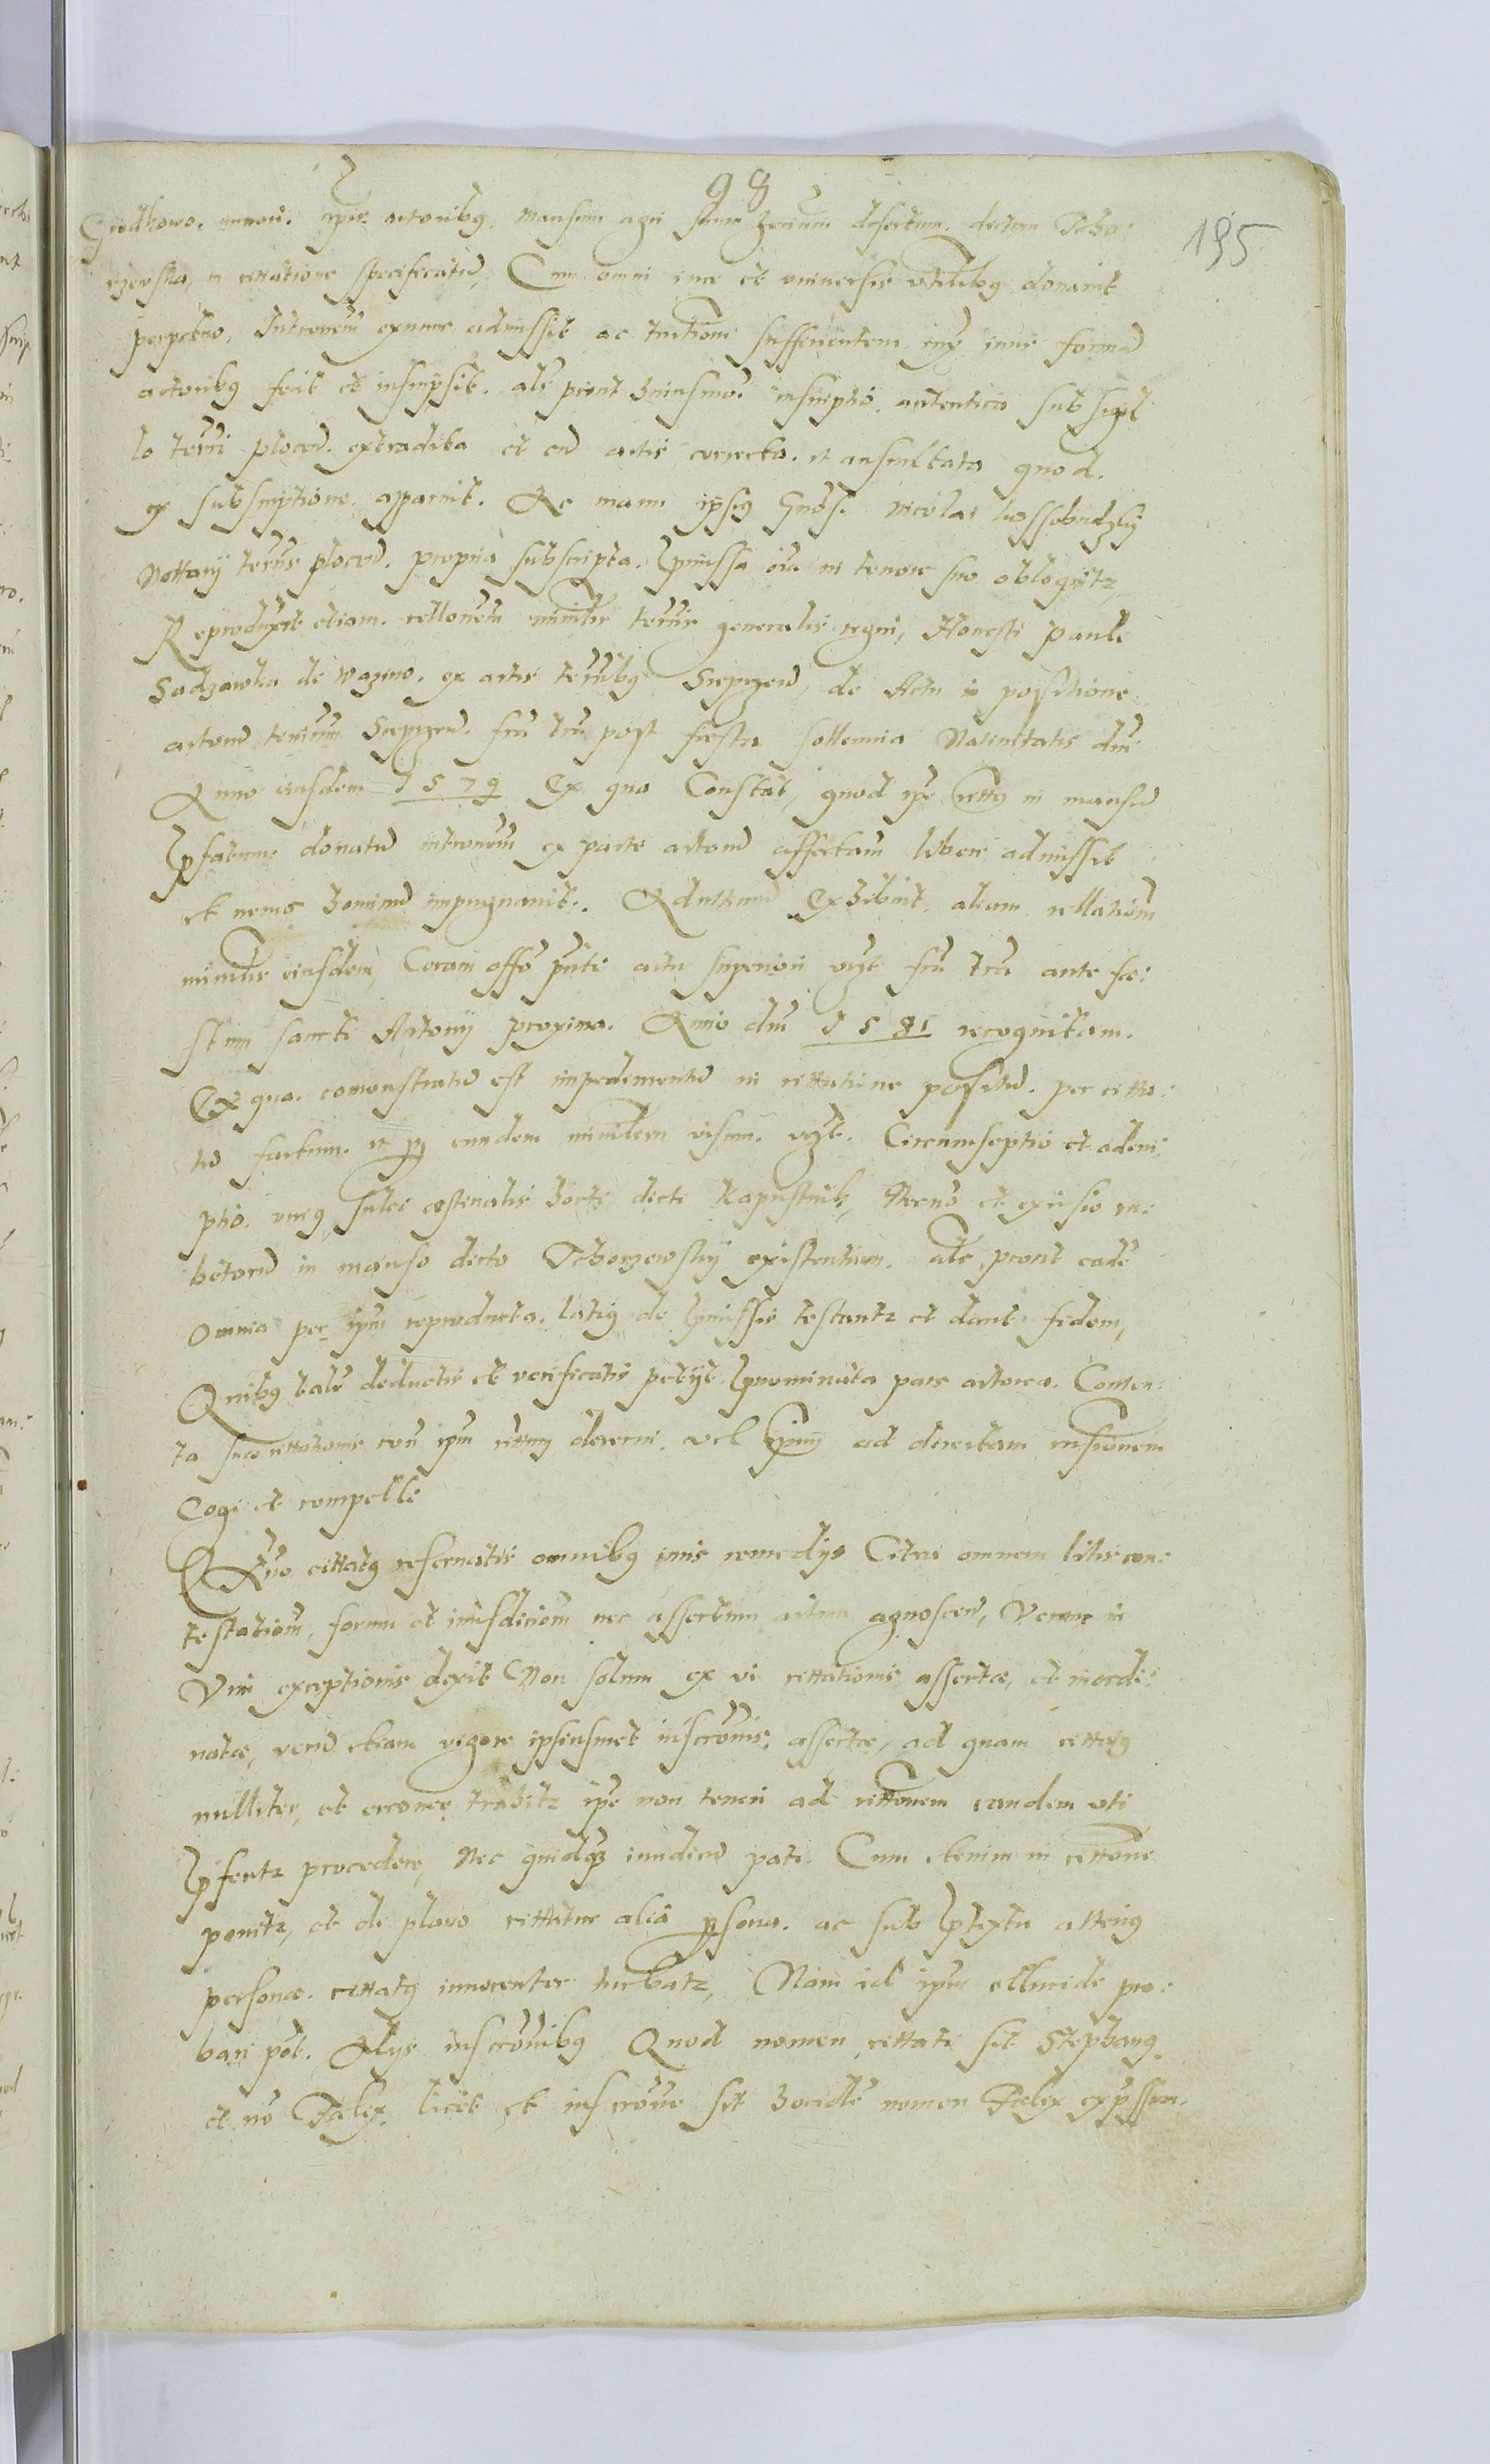 98
195
Grodkowo. minori. ipis actoribq. mansum agri suum desertum. dictum Tcho:
rzewska, in cittatione specificatũ, Cum omni iure et universis utilibq donavit
perpetuo. Intromem exnunc admissit ac tuitiõem sufficientem iux iuris formã
actoribq fecit et inscripsit. alr prout huiusmoi inscriptio. autentica sub sigil
lo terri plocen. extradita et cũ actis correcta. et auscultata quod.
ex subscriptione apparuit. Ac manu ipsiq Gnosi Nicolai Kossobudzky
Nottarij terris plocen. propria subscripta. pmissa oia in tenore suo obloquitr,
Reproduxit etiam. rellonem minilis terris generalis regni, Honesti Pauli
Sadzawka de Wazino. ex actis terribq Sieprzen, de Actu in positione
actorũ terrium Sieprzen. fria tria post festa sollemnia Nativitatis dni
Anno eiusdem 1579 Ex qua Constat, quod ipe cittq in mansũ
pfatum donatũ intromem ex parte actorũ affectam libere admissit
et nemo hominũ impugnavit. Adultimũ Exhibuit. aliam rellatiõem
minilis eiusdem, Coram offo pnti actu superiori vizt fria tria ante fe:
stum sancti Antonij proxima. Anno dni 1581 recognitam.
Ex qua. comonstratũ est impedimentũ in cittatione positũ. per citta:
tũ factum. et p eundem minilem visum. vizt. Circumseptio et adem:
ptio. uniq sulci estivalis horti dicti Kapustnik, Necno et excisio ru:
betorũ in manso dicto Tchorzewsky existentium. alr prout eadẽ
omnia per ipm reproducta. latiq de pmissis testantr et dant. fidem,
Quibq talr deductis et verificatis petijt. pnominata pars actorea. Conten:
ta sue cittationis con ipm cittum decerni. vel ipm ad directam rnsionem
Cogi et compelli
Aduo cittatq reservatis omnibq iuris remedijs Citra omnem litis con:
testatiõem, forum et iurisdiciõem nec assertum actum agnoscen, Verum in
Vim exceptionis dixit Non solum ex vi cittationis assertæ, et inordi:
natæ, verũ etiam vigore ipsiusmet inscronis, assertæ, ad quam cittatq
nulliter, et erronee trahitr ipe non teneri ad cittonem eandem uti
pfertr procedere, Nec quidq iuudicii pati. Cum etenim in cittone
ponitr, et de plano cittatur alia psona. ac sub ptextu alteriq
personæ. cittatq innocenter turbatr, Nam id ipm ellucide pro:
bari pot. Alijs inscronibq Quod nomen cittati sit Stephanq
et no Felix, licet et inscrone sit nomen Felix expssum.